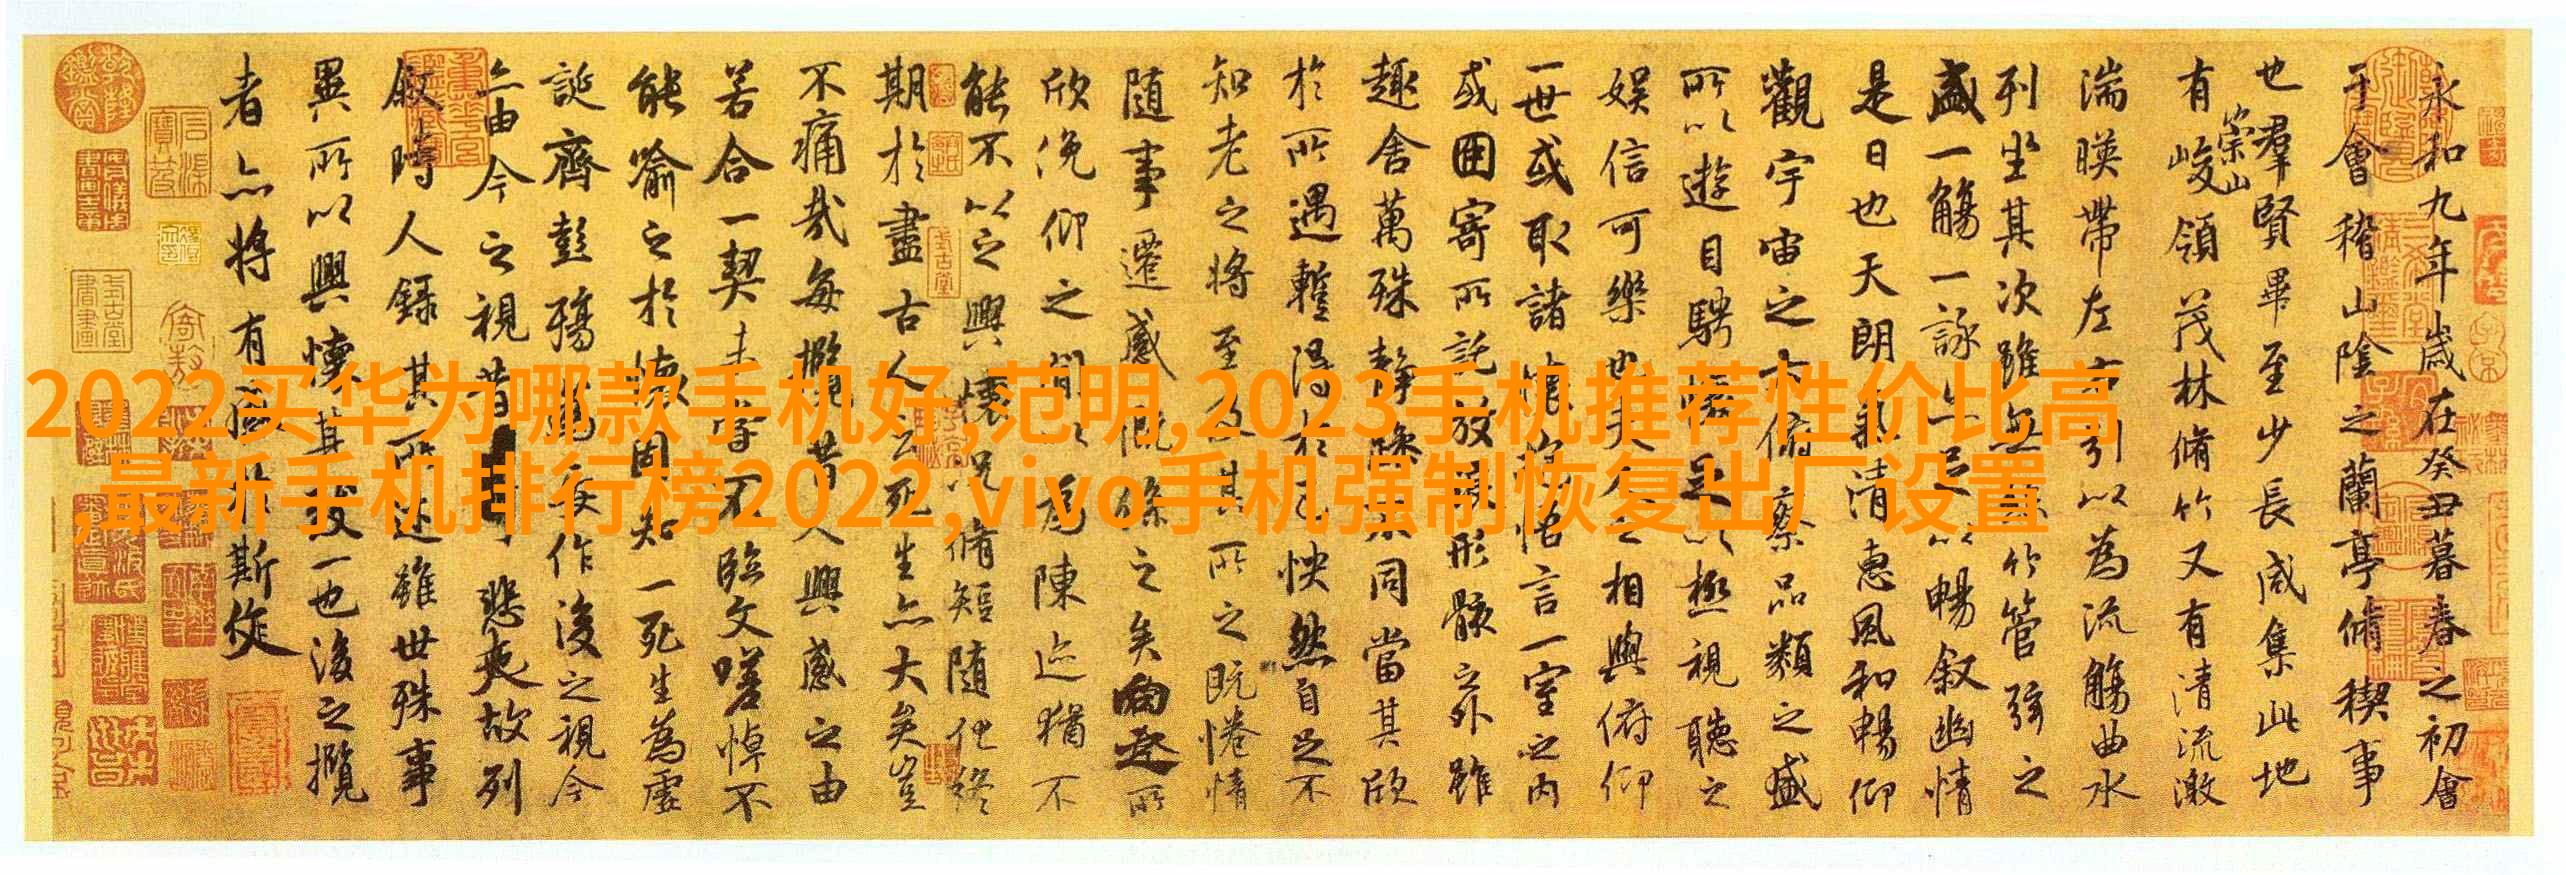 2022买华为哪款手机好,范明,2023手机推荐性价比高
,最新手机排行榜2022,vivo手机强制恢复出厂设置
永和九年歲在癸丑暮春之初會
于會稽山陰之蘭亭脩稧事
也羣賢畢至少長咸集此地
有崇山峻領茂林脩竹又有清流激
湍暎帶左右引以為流觴曲水
列坐其次雖無絲竹管弦之
盛一觴一詠亦足以暢叙幽情
是日也天朗氣清惠風和暢仰
觀宇宙之大俯察品類之盛
所以遊目騁懷足以極視聽之
娛信可樂也夫人之相與俯仰
一世或取諸懷抱悟言一室之內
或因寄所託放浪形骸之外雖
趣舍萬殊靜躁不同當其欣
於所遇暫得於己怏然自足不
知老之將至及其所之既惓情
隨事遷感慨係之矣向之所
欣俛仰之間以為陳迹猶不
能不以之興懷況脩短隨化終
期於盡古人云死生亦大矣豈
不痛哉每攬昔人興感之由
若合一契未嘗不臨文嗟悼不
能喻之於懷固知一死生為虛
誕齊彭殤為妄作後之視今
亦由今之視昔悲夫故列
叙時人錄其所述雖世殊事
異所以興懷其致一也後之攬
者亦將有感於斯文